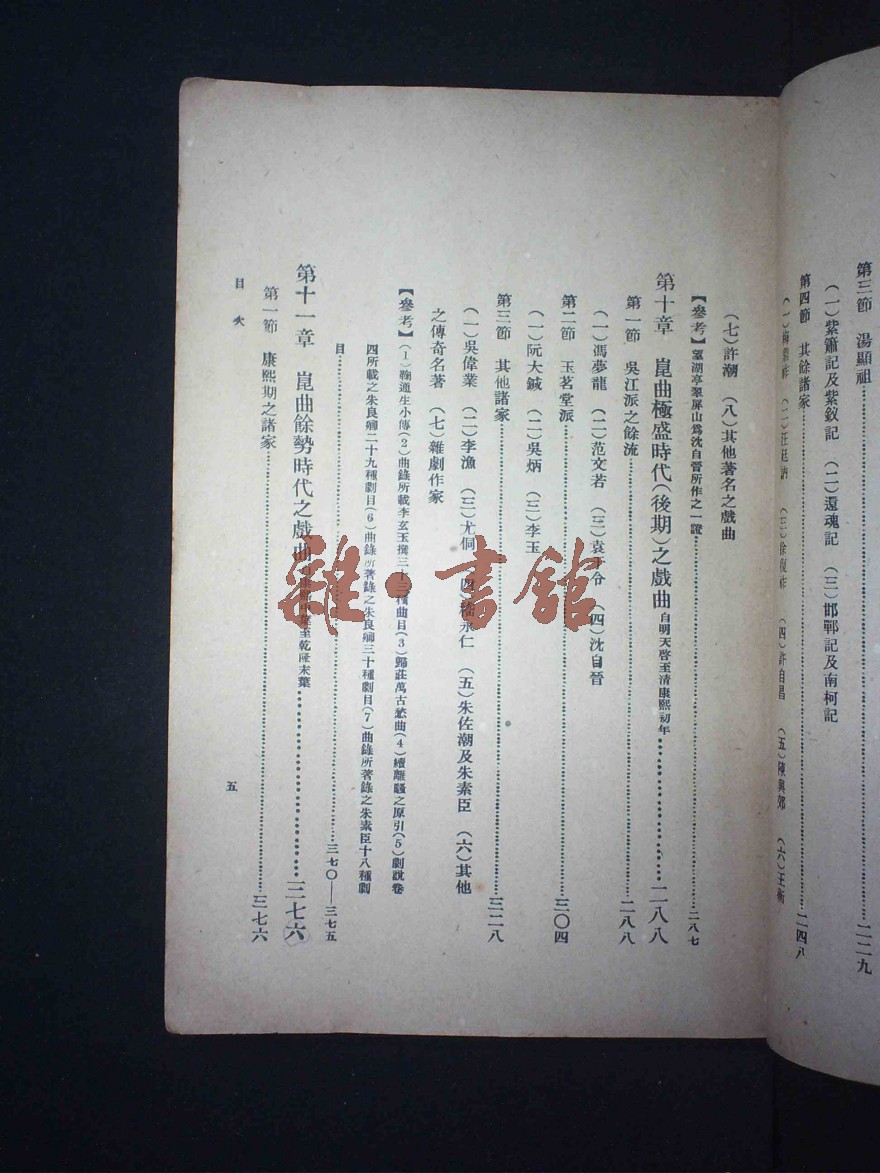 第三節　湯顯祖……二二九
（一）紫簫記及紫釵記　（二）還魂記　（三）邯鄲記及南柯記
第四節　其餘諸家……二四八
（二）汪廷訥　（三）徐復祚　（四）許自昌　（五）陳與郊　（六）王衡
（七）許潮　（八）其他著名之戲曲
【參考】望湖亭翠屏山爲沈自晉所作之一證……二八七
第十章　崑曲極盛時代（後期）之戲曲自明天啓至清康熙初年……二八八
第一節　吳江派之餘流……二八八
（一）馮夢龍　（二）范文若　（三）袁于令　（四）沈自晉
第二節　玉茗堂派……三〇四
（一）阮大鋮　（二）吳炳　（三）李玉
第三節　其他諸家……三二八
（一）吳偉業　（二）李漁　（三）尤侗　（四）嵇永仁　（五）朱佐潮及朱素臣　（六）其他
之傳奇名著　（七）雜劇作家
【參考】（1）鞠通生小傳（2）曲錄所載李玄玉撰三十三種曲目（3）歸莊萬古愁曲（4）續離騷之原引（5）劇說卷
四所載之朱良卿二十九種劇目（6）曲錄所著錄之朱良卿三十種劇目（7）曲錄所著錄之朱素臣十八種劇
目……三七〇—三七五
第十一章　崑曲餘勢時代之戲曲自康熙中葉至乾隆末葉……三七六
第一節　康熙期之諸家……三七六
目次
五
雜·書館